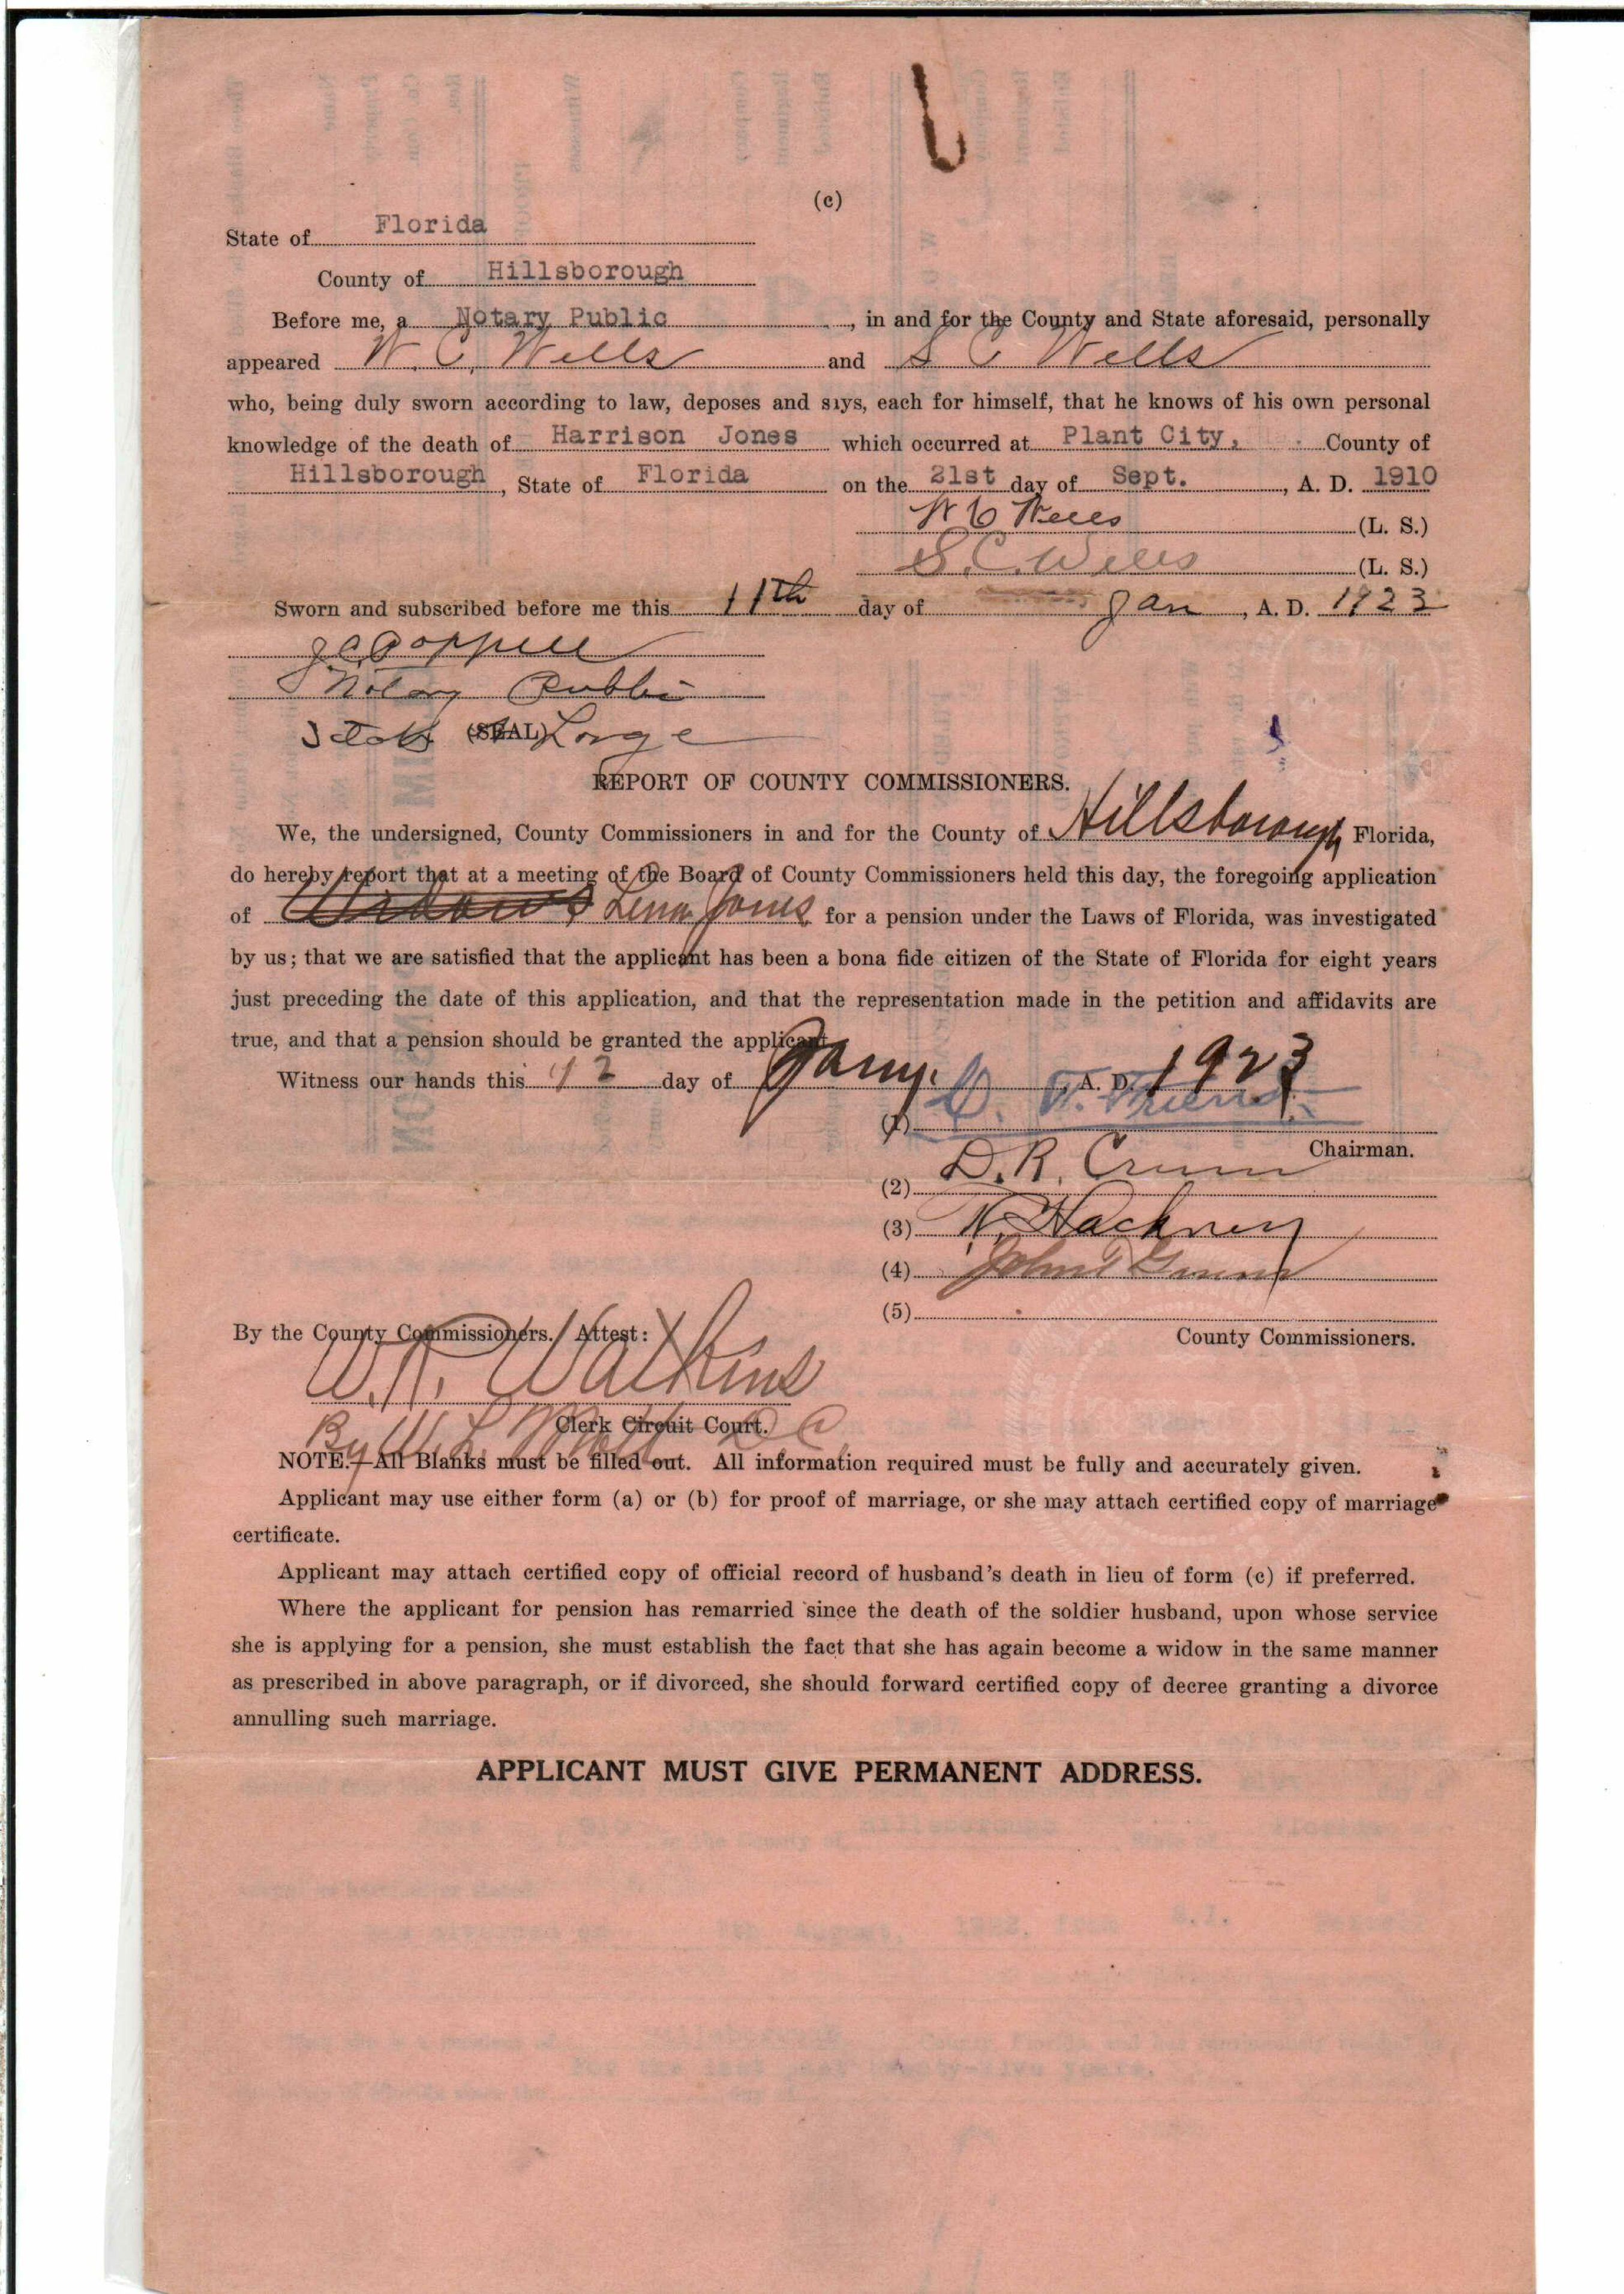 (c)
State of Florida
County of Hillsborough
Before me, a Notary Public, in and for the County and State aforesaid, personally
appeared W. C. Wells and S C Wells
who, being duly sworn according to law, deposes and says, each for himself, that he knows of his own personal
knowledge of the death of Harrison Jones which occurred at Plant City, County of
Hillsborough, State of Florida on the 21st day of Sept., A. D. 1910
W C Wells (L. S.)
S. C. Wells (L. S.)
Sworn and subscribed before me this 11th day of Jan, A. D. 1923
Notary Public
State (SEAL) Large
REPORT OF COUNTY COMMISSIONERS.
We, the undersigned, County Commissioners in and for the County of Hillsborough Florida,
do hereby report that at a meeting of the Board of County Commissioners held this day, the foregoing application
of Lena Jones for a pension under the Laws of Florida, was investigated
by us; that we are satisfied that the applicant has been a bona fide citizen of the State of Florida for eight years
just preceding the date of this application, and that the representation made in the petition and affidavits are
true, and that a pension should be granted the applicant.
Witness our hands this 12 day of Jany. A. D. 1923
(1)
Chairman.
(2) D. R. Crum
(3) N. Hackney
(4) John
(5)
By the County Commissioners. Attest: County Commissioners.
W. R. Watkins
Clerk Circuit Court.
By W. L. D C
NOTE.—All Blanks must be filled out. All information required must be fully and accurately given.
Applicant may use either form (a) or (b) for proof of marriage, or she may attach certified copy of marriage
certificate.
Applicant may attach certified copy of official record of husband's death in lieu of form (c) if preferred.
Where the applicant for pension has remarried since the death of the soldier husband, upon whose service
she is applying for a pension, she must establish the fact that she has again become a widow in the same manner
as prescribed in above paragraph, or if divorced, she should forward certified copy of decree granting a divorce
annulling such marriage.
APPLICANT MUST GIVE PERMANENT ADDRESS.